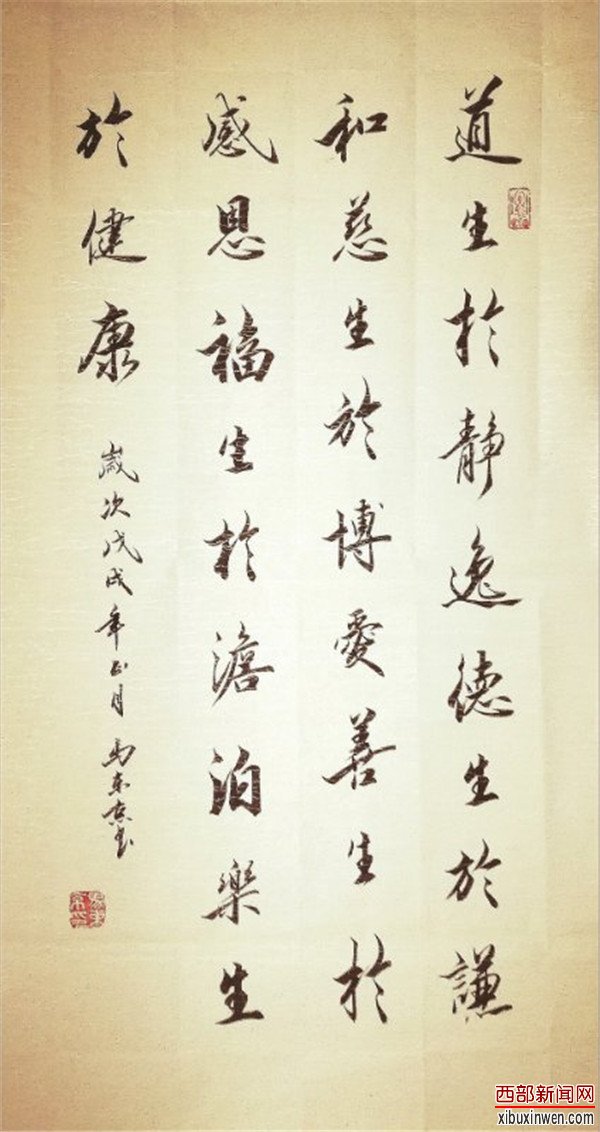 道生於静逸德生於謙
和慈生於博愛善生於
感恩福生於澹泊樂生
於健康
歲次戊戌年正月馬东京书
西部新闻网
xibuxinwen.com